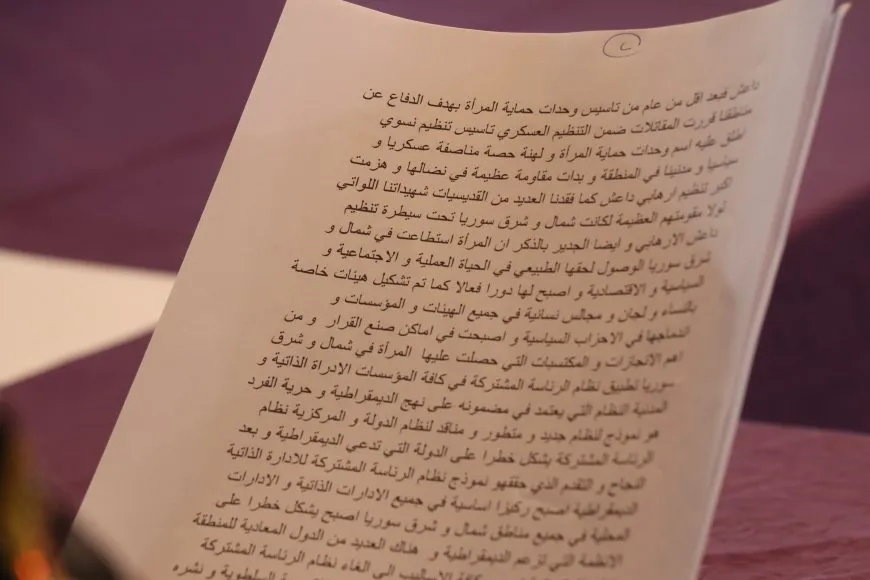 ٢
داعش فبعد اقل من عام من تاسيس وحدات حماية المرأة بهدف الدفاع عن
مناطقنا قررت المقاتلات ضمن التنظيم العسكري تاسيس تنظيم نسوي
اطلق عليه اسم وحدات حماية المرأة و لهنة حصة مناصفة عسكريا و
سياسيا و مدنينا في المنطقة و بدات مقاومة عظيمة في نضالها و هزمت
اكبر تنظيم ارهابي داعش كما فقدنا العديد من القديسيات شهيداتنا اللواتي
لولا مقومتهم العظيمة لكانت شمال و شرق سوريا تحت سيطرة تنظيم
داعش الارهابي و ايضا الجدير بالذكر ان المرأة استطاعت في شمال و
شرق سوريا الوصول لحقها الطبيعي في الحياة العملية و الاجتماعية و
السياسية و الاقتصادية و اصبح لها دورا فعالا كما تم تشكيل هيئات خاصة
بالنساء و لجان و مجالس نسائية في جميع الهيئات و المؤسسات و
اندماجها في الاحزاب السياسية و اصبحت في اماكن صنع القرار و من
اهم الانجازات و المكتسبات التي حصلت عليها المرأة في شمال و شرق
سوريا تطبيق نظام الرئاسة المشتركة في كافة المؤسسات الادراة الذاتية و
المدنية النظام التي يعتمد في مضمونه على نهج الديمقراطية و حرية الفرد
هو نموذج لنظام جديد و متطور و مناقد لنظام الدولة و المركزية نظام
الرئاسة المشتركة يشكل خطرا على الدولة التي تدعي الديمقراطية و بعد
النجاح و التقدم الذي حققهو نموذج نظام الرئاسة المشتركة للادارة الذاتية
الديمقراطية اصبح ركيزا اساسية في جميع الادارات الذاتية و الادارات
المحلية في جميع مناطق شمال و شرق سوريا اصبح يشكل خطرا على
الانظمة التي تزعم الديمقراطية و هناك العديد من الدول المعادية للمنطقة
كافة الاساليب الى الغاء نظام الرئاسة المشتركة
السلطوية و نشره